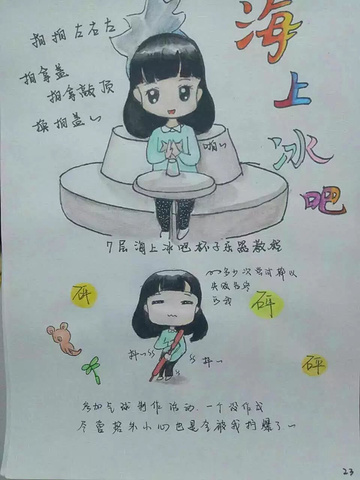 海上冰吧
拍拍左右左
拍拿盖
拍拿敲顶
换拍盖~
啪~
7层海上冰吧杯子乐器教程
多少次尝试都以
失败告终
砰
砰
抖~
抖~
砰
参加气球制作活动.一个没作成
尽管努力小心但是全被我捏爆了~
23